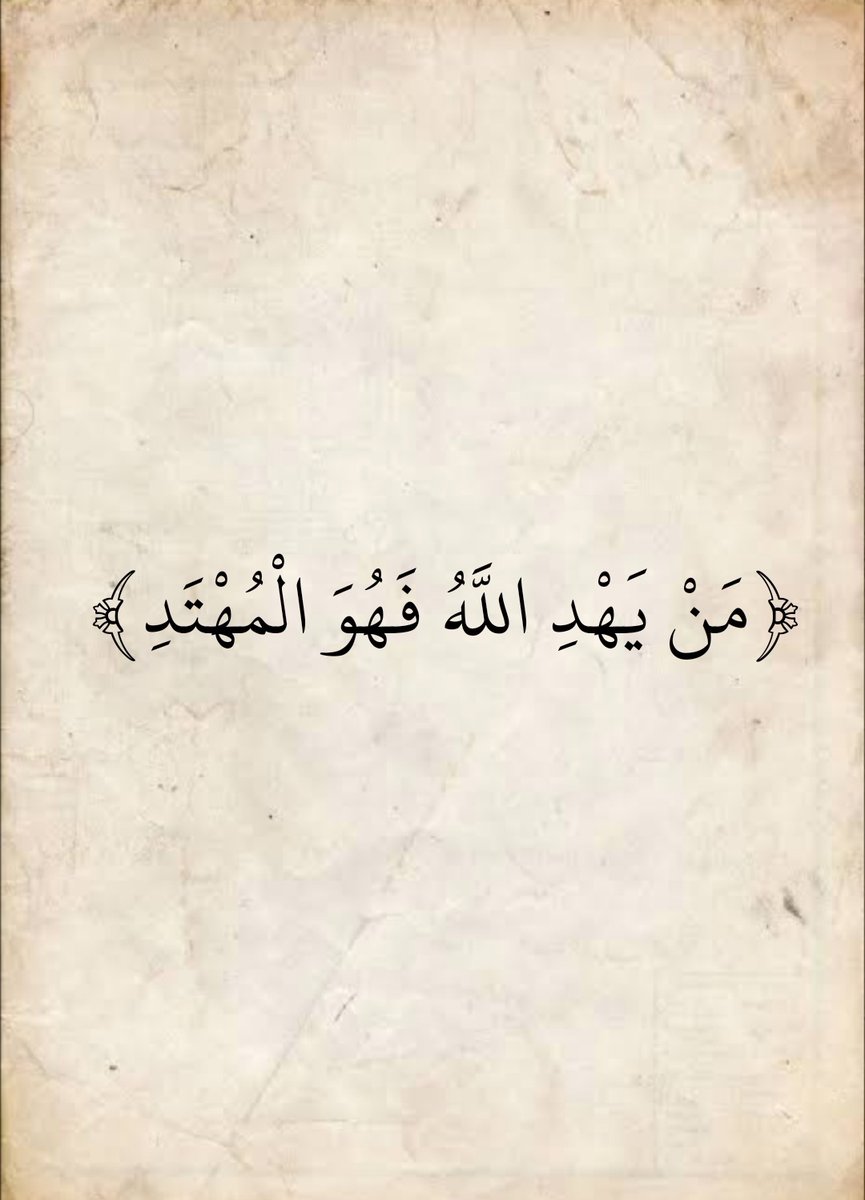 ﴿مَنْ يَهْدِ اللَّهُ فَهُوَ الْمُهْتَدِ﴾